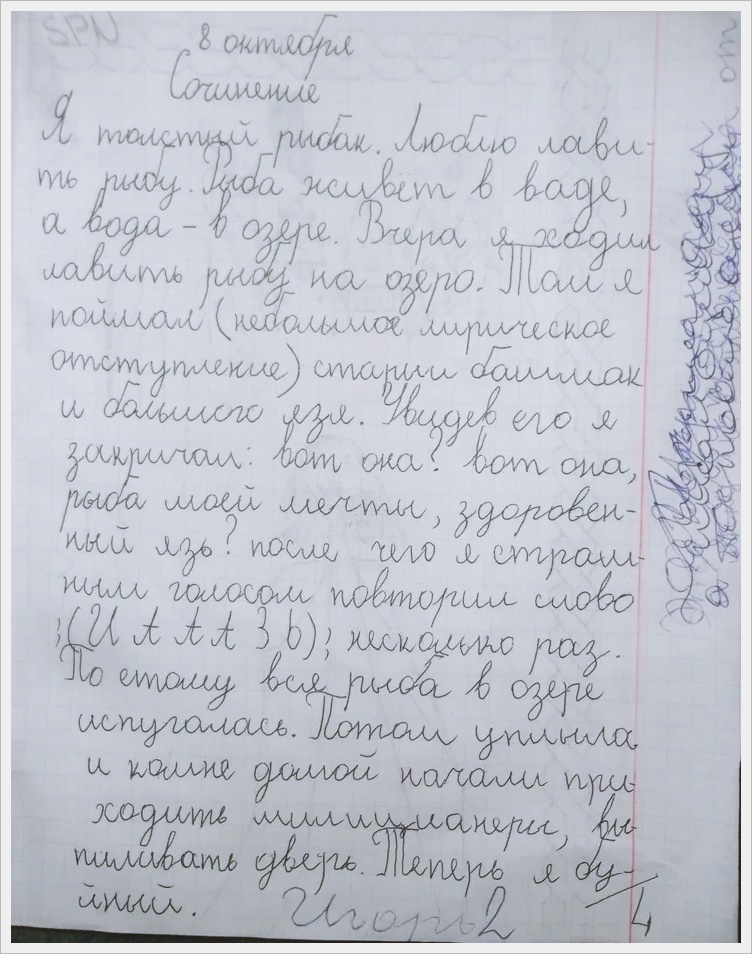 SPN
8 октября
Сочинение
Я толстый рыбак. Люблю лави-
ть рыбу. Рыба живёт в ваде,
а вода – в озере. Вчера я ходил
лавить рыбу на озеро. Там я
поймал (небольшое лирическое
отступление) старии башмак
и большого язя. Увидев его я
закричал: вот она? вот она,
рыба моей мечты, здоровен-
ный язь? после чего я страш-
ным голосом повторил слово
;(И А А А З Ь); несколько раз.
По етому вся рыба в озере
испугалась. Потом уплыла
и комне домой начали при-
ходить милицианеры, вы-
пиливать дверь. Теперь я бу-
йный.
Игорь 2
4
от